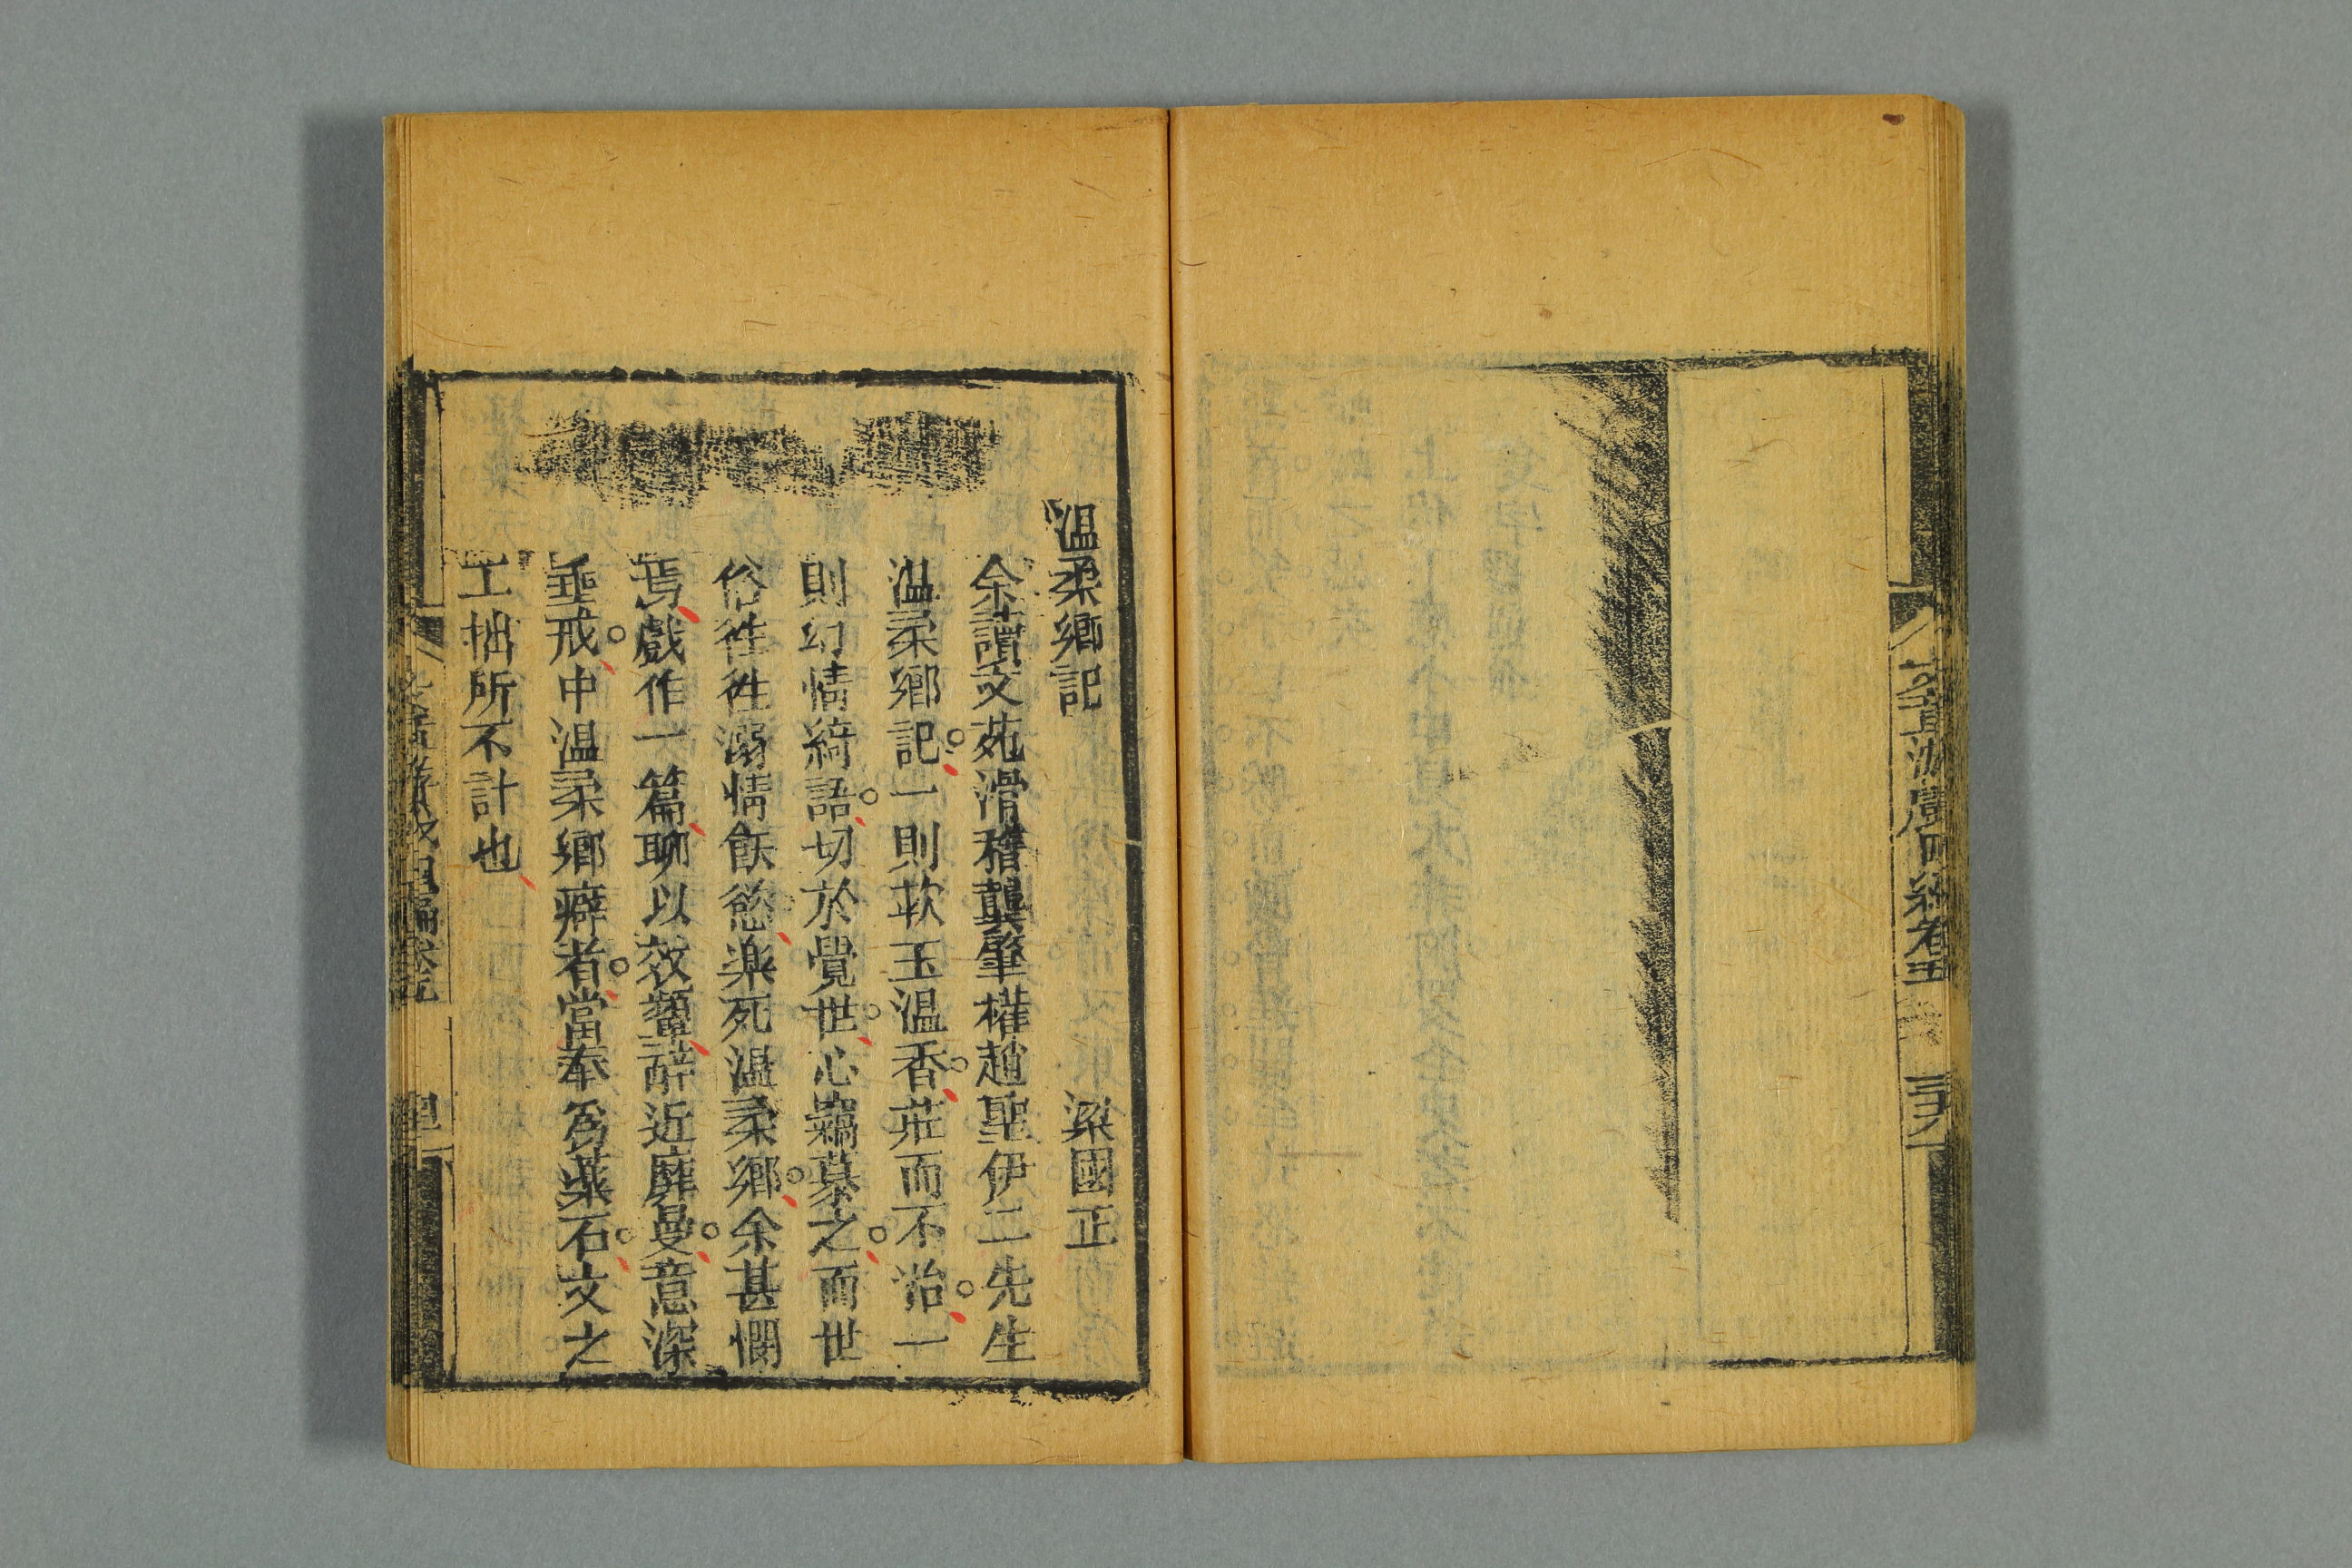 溫柔鄉記 梁國正
余讀文苑滑稽龔肇權趙聖伊二先生
溫柔鄉記一則軟玉温香莊而不冶一
則幻情綺語切於覺世心竊慕之而世
俗徃徃溺情飫慾樂死温柔鄉余甚憫
焉戲作一篇聊以效顰辭近靡曼意深
垂戒中温柔鄉癖者當奉爲藥石文之
工拙所不計也